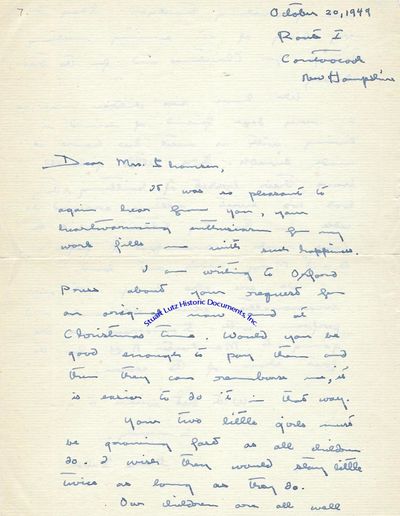 7.
October 20, 1949
Route I
Contoocook
New Hampshire
Dear Mrs.
It was so pleasant to
again hear from you, your
heartwarming enthusiasm for my
work fills me with such happiness.
I am writing to Oxford
Press about your request for
an original now and at
Christmas time. Would you be
good enough to pay them and
then they can reimburse me, it
is easier to do it in that way.
Your two little girls must
be growing fast as all children
do. I wish they would stay little
twice as long as they do.
Our children are all well
Stuart Lutz Historic Documents, Inc.